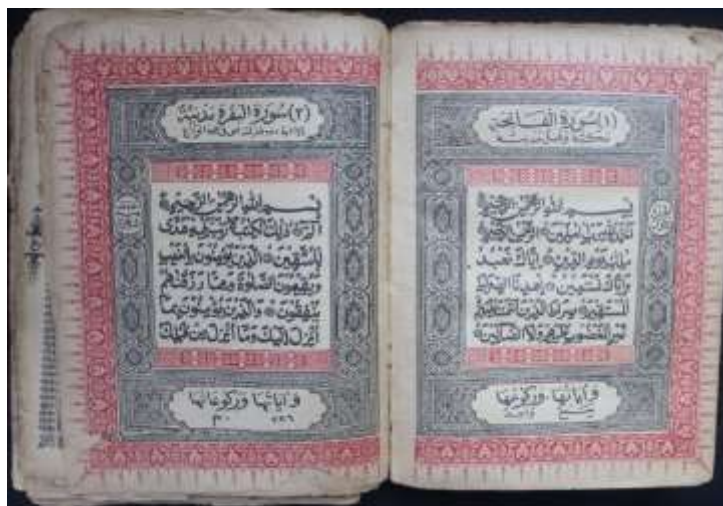 (١) سورة الفاتحة
بسم الله الرحمن الرحيم
رب العلمين الرحمن الرحيم
ملك يوم الدين إياك نعبد
وإياك نستعين اهدنا الصراط
المستقيم صراط الذين أنعمت عليهم
غير المغضوب عليهم ولا الضالين
وآياتها وركوعها
(٢) سورة البقرة مدنية
بسم الله الرحمن الرحيم
الم ذلك الكتب لا ريب فيه هدى
للمتقين الذين يؤمنون بالغيب
ويقيمون الصلوة ومما رزقنهم
ينفقون والذين يؤمنون بما
أنزل إليك وما أنزل من قبلك
وآياتها وركوعاتها